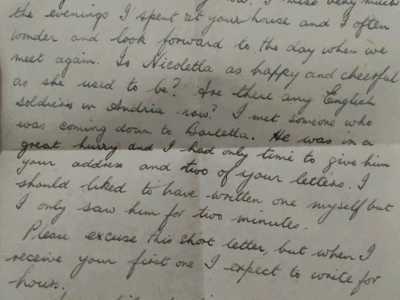 I miss very much
the evenings I spent at your house and I often
wonder and look forward to the day when we
meet again. Is Nicoletta as happy and cheerful
as she used to be? Are there any English
soldiers in Andria now? I met someone who
was coming down to Barletta. He was in a
great hurry and I had only time to give him
your address and two of your letters. I
should liked to have written one myself but
I only saw him for two minutes.
Please excuse this short letter, but when I
receive your first one I expect to write for
hours.